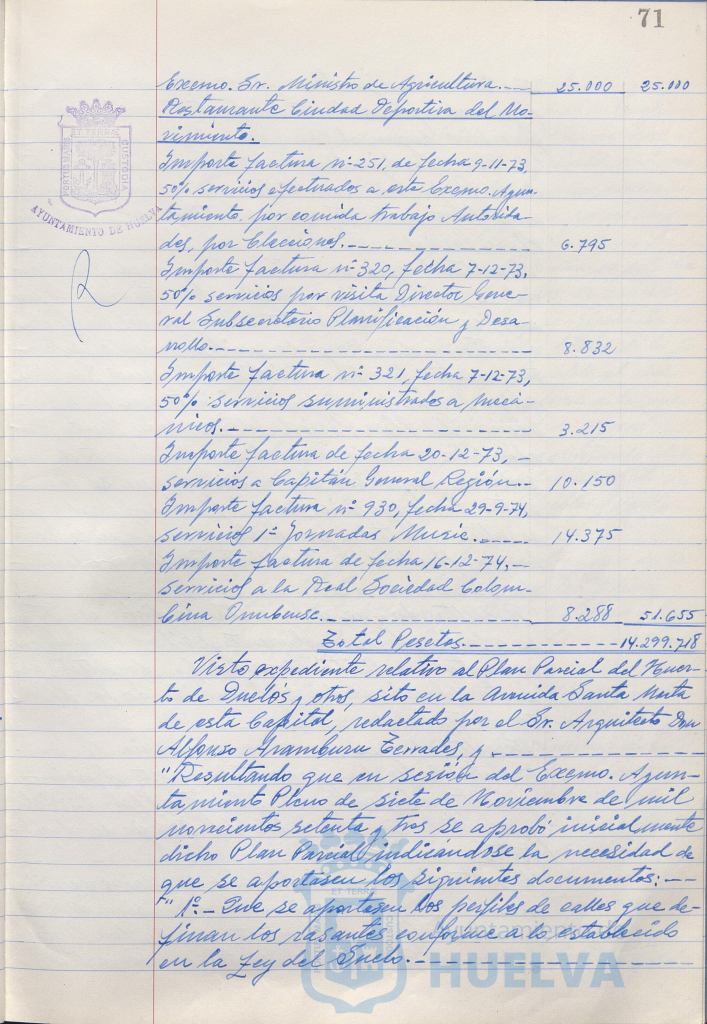 71
Excmo. Sr. Ministro de Agricultura.---- 25.000 25.000
Restaurante Ciudad Deportiva del Mo-
vimiento.
Importe factura nº 251, de fecha 9-11-73,
50% servicios efectuados a este Excmo. Ayun-
tamiento, por comida trabajo Autorida-
des, por Elecciones.---- 6.795
Importe factura nº 320, fecha 7-12-73,
50% servicios por visita Director Gene-
ral Subsecretario Planificación y Desa-
rrollo.---- 8.832
Importe factura nº 321, fecha 7-12-73,
50% servicios suministrados a mecá-
nicos.---- 3.215
Importe factura de fecha 20-12-73,-
servicios a Capitán General Región.-- 10.150
Importe factura nº 930, fecha 29-9-74,
servicios 1ª Jornadas Music.---- 14.375
Importe factura de fecha 16-12-74,--
servicios a la Real Sociedad Colom-
bina Onubense.---- 8.288 51.655
Total Pesetas.---- 14.299.718
Visto expediente relativo al Plan Parcial del Huer-
to de Duelos y otros, sito en la Avenida Santa Marta
de esta Capital, redactado por el Sr. Arquitecto Don
Alfonso Aramburu Terrades, y ----
"Resultando que en sesión del Excmo. Ayun-
tamiento Pleno de siete de Noviembre de mil
novecientos setenta y tres se aprobó inicialmente
dicho Plan Parcial, indicándose la necesidad de
que se aportasen los siguientes documentos: --
" 1º.- Que se aportasen los perfiles de calles que de-
finan las rasantes conforme a lo establecido
en la Ley del Suelo.----
ET TERRA
PORTUS MARIS
CUSTODIA
AYUNTAMIENTO DE HUELVA
Ayuntamiento
HUELVA